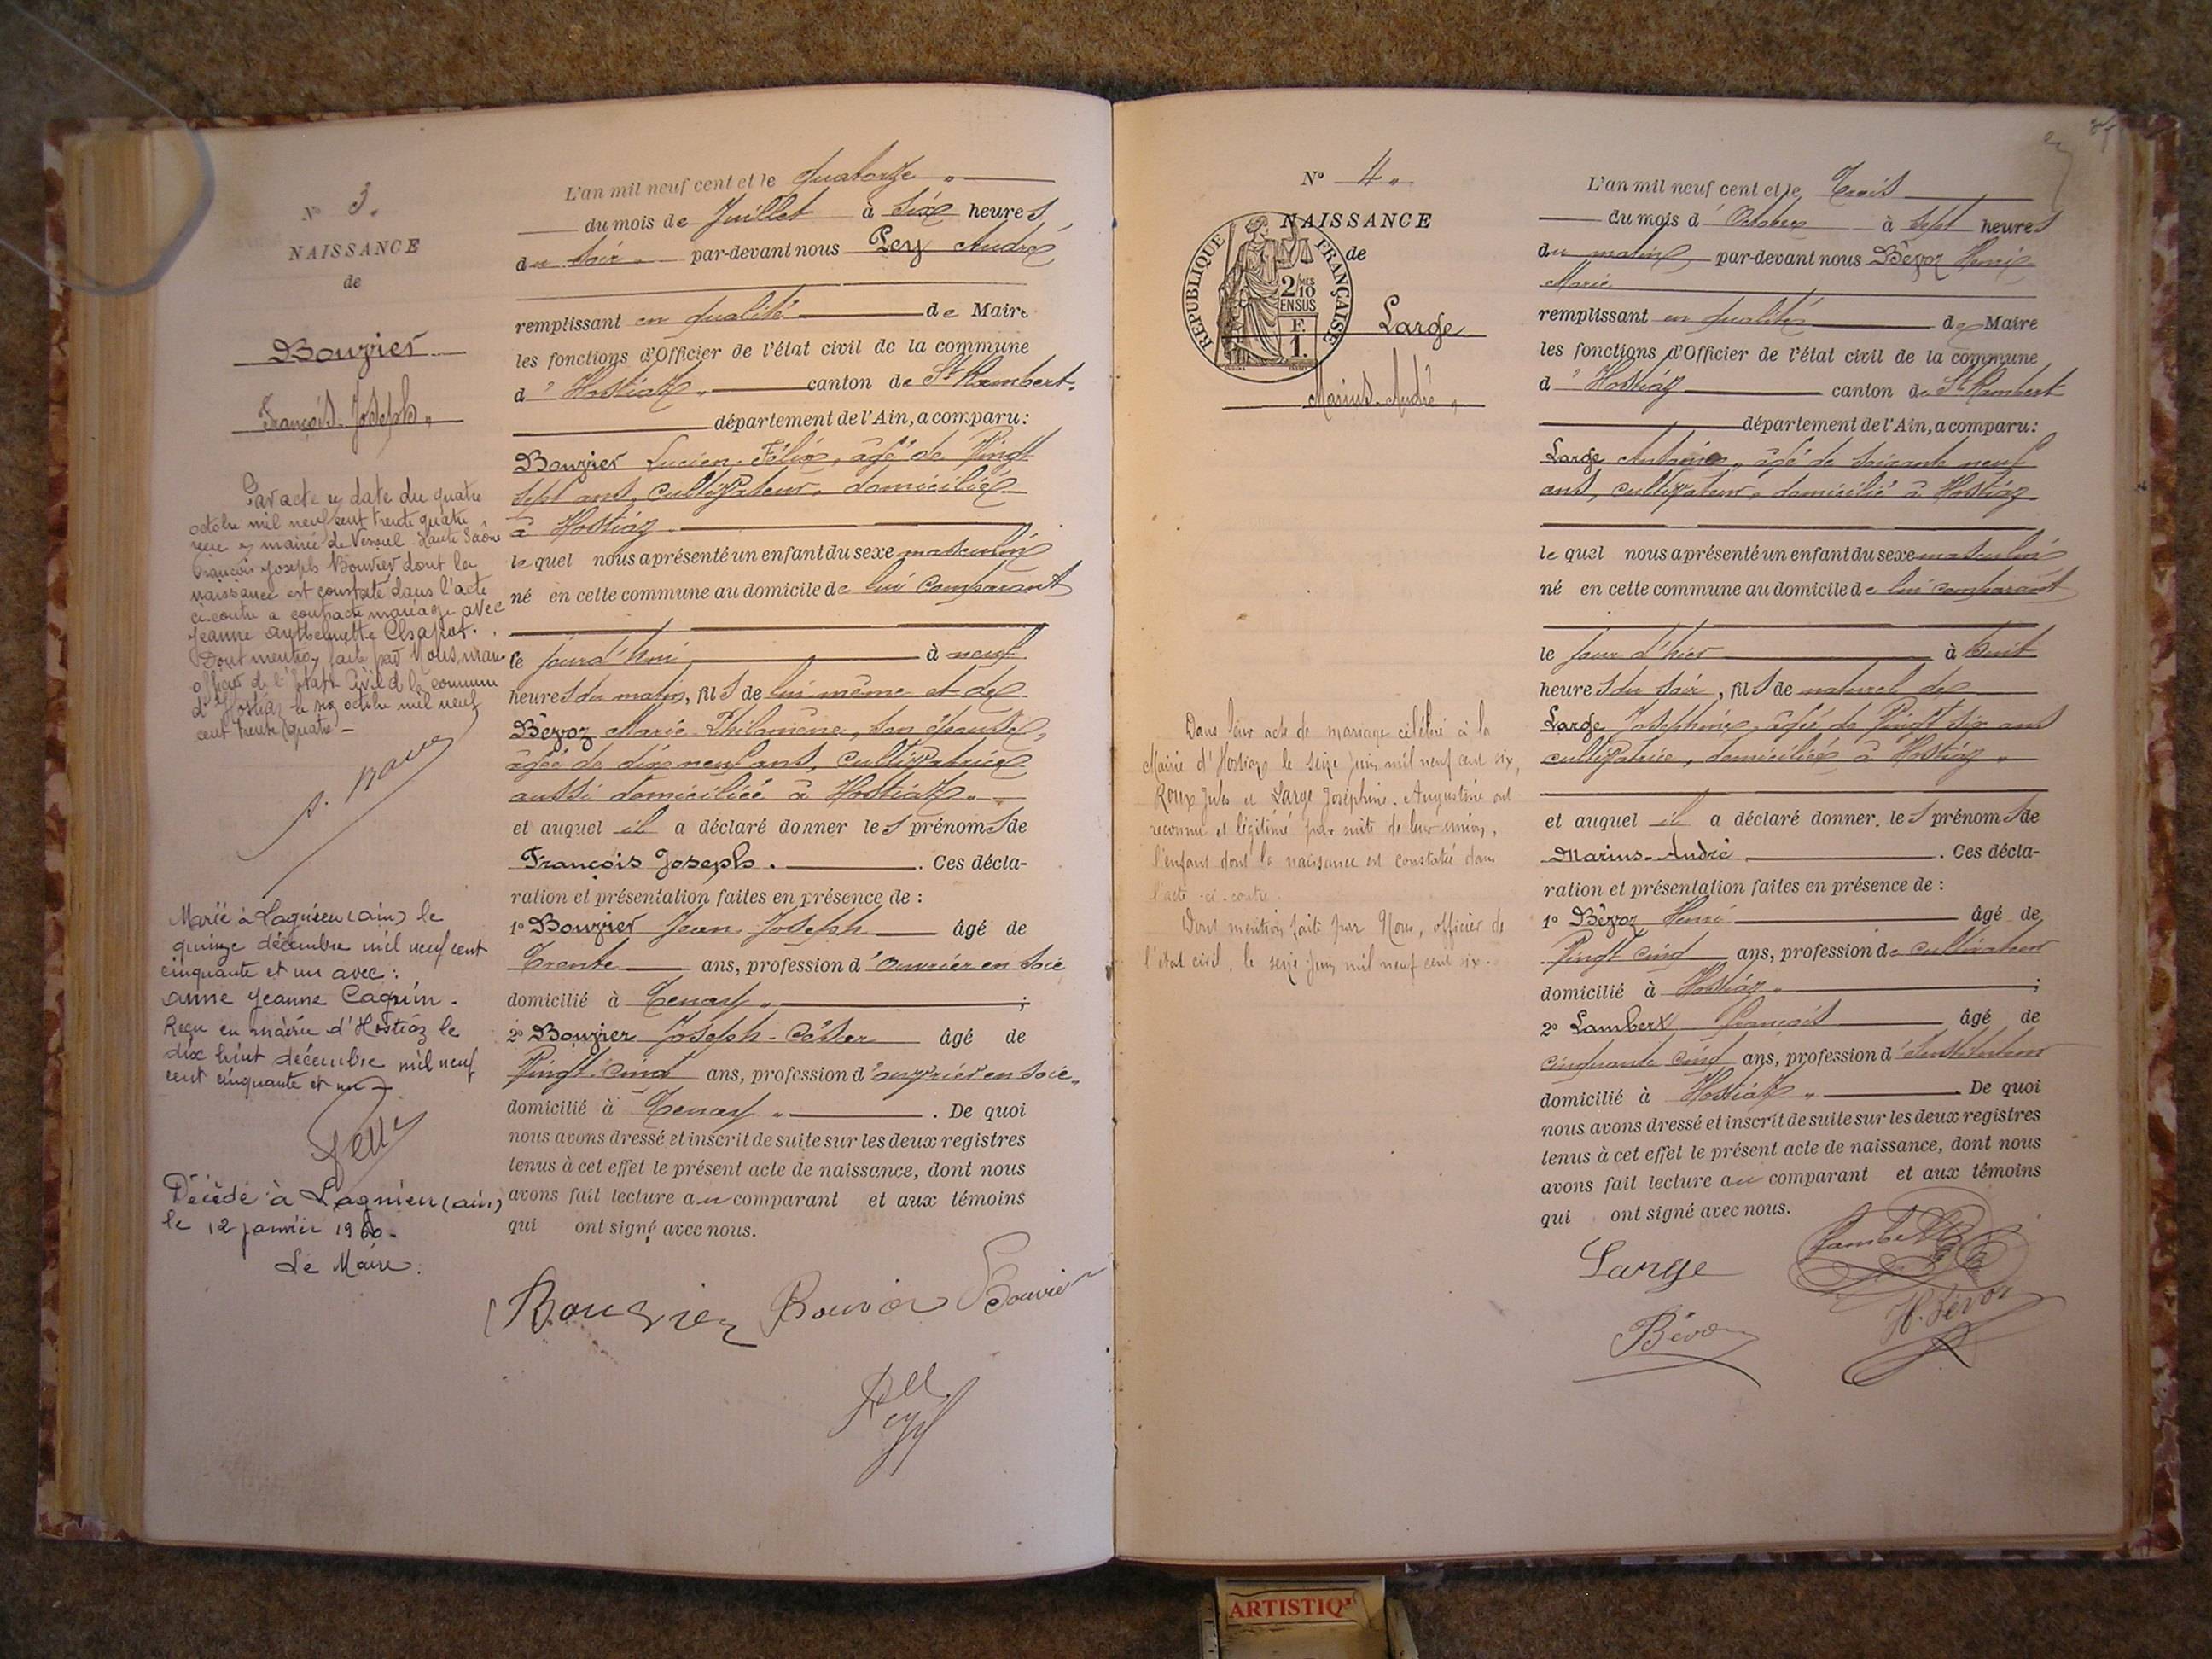 N° 3.
NAISSANCE
de
Bouvier
François-Joseph
Par acte en date du quatre
octobre mil neuf cent trente quatre
reçu en mairie de Vesoul Haute Saône
François Joseph Bouvier dont la
naissance est constatée dans l'acte
ci-contre a contracté mariage avec
Jeanne
Dont mention faite par Nous, maire
officier de l'Etat Civil de la commune
d'Hostiaz le six octobre mil neuf
cent trente quatre
Marié à Lagnieu (ain) le
quinze décembre mil neuf cent
cinquante et un avec :
Anne Jeanne Caquin.
Reçu en mairie d'Hostiaz le
dix huit décembre mil neuf
cent cinquante et un
Décédé à Lagnieu (ain)
le 12 janvier
Le Maire.
L'an mil neuf cent et le quatorze
du mois de Juillet à six heures
du soir par-devant nous Pey André
remplissant en qualité de Maire
les fonctions d'Officier de l'état civil de la commune
d'Hostiaz canton de St Rambert.
département de l'Ain, a comparu :
Bouvier Lucien-Félix, âgé de Vingt
sept ans, cultivateur, domicilié
à Hostiaz
lequel nous a présenté un enfant du sexe masculin
né en cette commune au domicile de lui comparant
le jourd'hui à neuf
heures du matin, fils de lui même et de
Bévoz Marie-Philomène, son épouse,
âgée de dix neuf ans, cultivatrice
aussi domiciliée à Hostiaz
et auquel il a déclaré donner les prénoms de
François Joseph. Ces décla-
ration et présentation faites en présence de :
1° Bouvier Jean Joseph âgé de
Trente ans, profession d'ouvrier en soie
domicilié à Tenay ;
2° Bouvier Joseph- âgé de
Vingt cinq ans, profession d'ouvrier en soie
domicilié à Tenay . De quoi
nous avons dressé et inscrit de suite sur les deux registres
tenus à cet effet le présent acte de naissance, dont nous
avons fait lecture au comparant et aux témoins
qui ont signé avec nous.
Bouvier Bouvier Bouvier
Pey
N° 4
NAISSANCE
de
RÉPUBLIQUE FRANÇAISE
2/10 MES
EN SUS
F.
1.
Large
Marius-André
Dans leur acte de mariage célébré à la
Mairie d'Hostiaz le seize juin mil neuf cent six,
Roux Jules et Large Joséphine-Augustine ont
reconnu et légitimé par suite de leur union,
l'enfant dont la naissance est constatée dans
l'acte ci-contre.
Dont mention faite par Nous, officier de
l'état civil, le seize juin mil neuf cent six.
L'an mil neuf cent et le Trois
du mois d'Octobre à sept heures
du matin par-devant nous Bévoz Henri
Marie
remplissant en qualité de Maire
les fonctions d'Officier de l'état civil de la commune
d'Hostiaz canton de St Rambert
département de l'Ain, a comparu :
Large Antoine, âgé de soixante neuf
ans, cultivateur, domicilié à Hostiaz
lequel nous a présenté un enfant du sexe masculin
né en cette commune au domicile de lui comparant
le jour d'hier à huit
heures du soir, fils de naturel de
Large Joséphine, âgée de Vingt six ans
cultivatrice, domiciliée à Hostiaz
et auquel il a déclaré donner les prénoms de
Marius-André . Ces décla-
ration et présentation faites en présence de :
1° Bévoz Henri âgé de
Vingt cinq ans, profession de cultivateur
domicilié à Hostiaz ;
2° Lambert François âgé de
cinquante cinq ans, profession d'instituteur
domicilié à Hostiaz . De quoi
nous avons dressé et inscrit de suite sur les deux registres
tenus à cet effet le présent acte de naissance, dont nous
avons fait lecture au comparant et aux témoins
qui ont signé avec nous.
Large Lambert
Bévoz H. Bévoz
ARTISTIQ